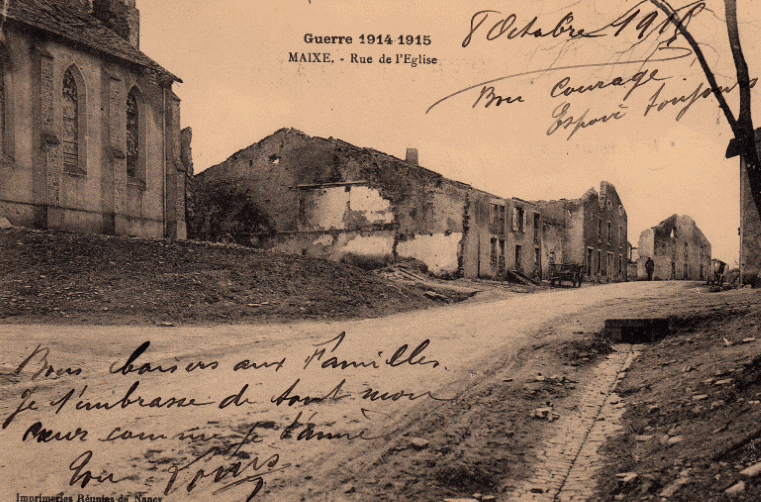 Guerre 1914-1915
MAIXE. - Rue de l'Eglise
8 Octobre 1915
Bon courage
Espoir toujours
Bons baisers aux Familles.
Je t'embrasse de tout mon
cœur comme je t'aime
ton Louis
Imprimeries Réunies de Nancy